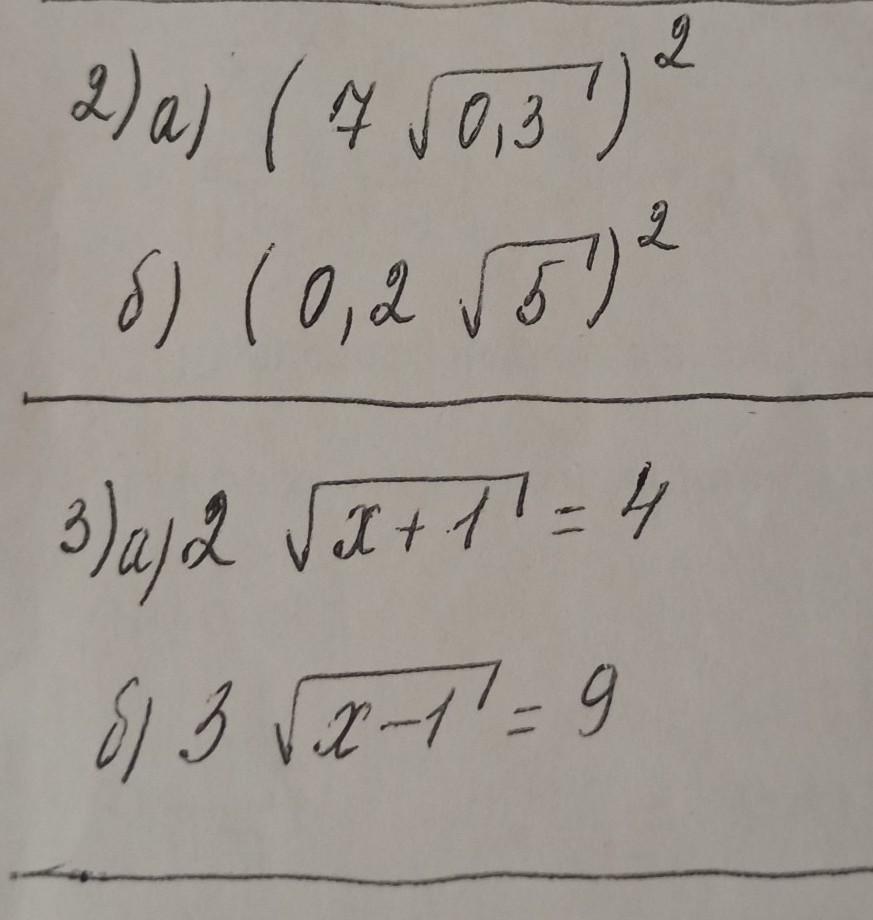 2) а) (7 √0,3)²
б) (0,2 √5)²
3) а) 2 √x+1 = 4
б) 3 √x-1 = 9